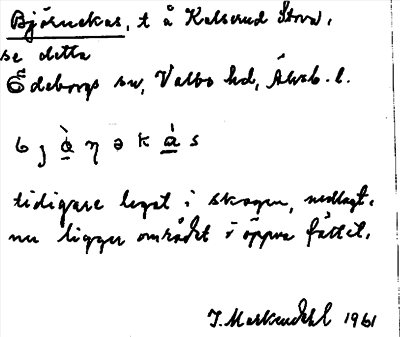 Björnekas, t å Kalserud Stora,
se detta
Ödeborgs sn, Valbo hd, Älvsb. l.
b j ò̱ ŋ ə k á̱ s
tidigare legat i skogen, nedlagt.
nu ligger området i öppna fältet.
J. Markendahl 1961